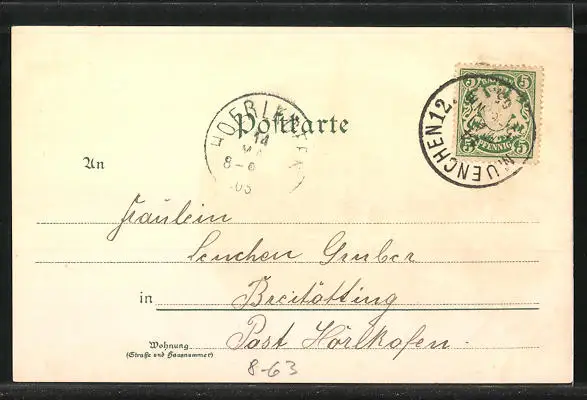 Postkarte
BAYERN
5 5
5 PFENNIG 5
MUENCHEN 12.
14
8-
03
An
Fräulein
Lenchen Gruber
in Breitötting
Wohnung
(Straße und Hausnummer)
Post Hörlkofen.
8-63